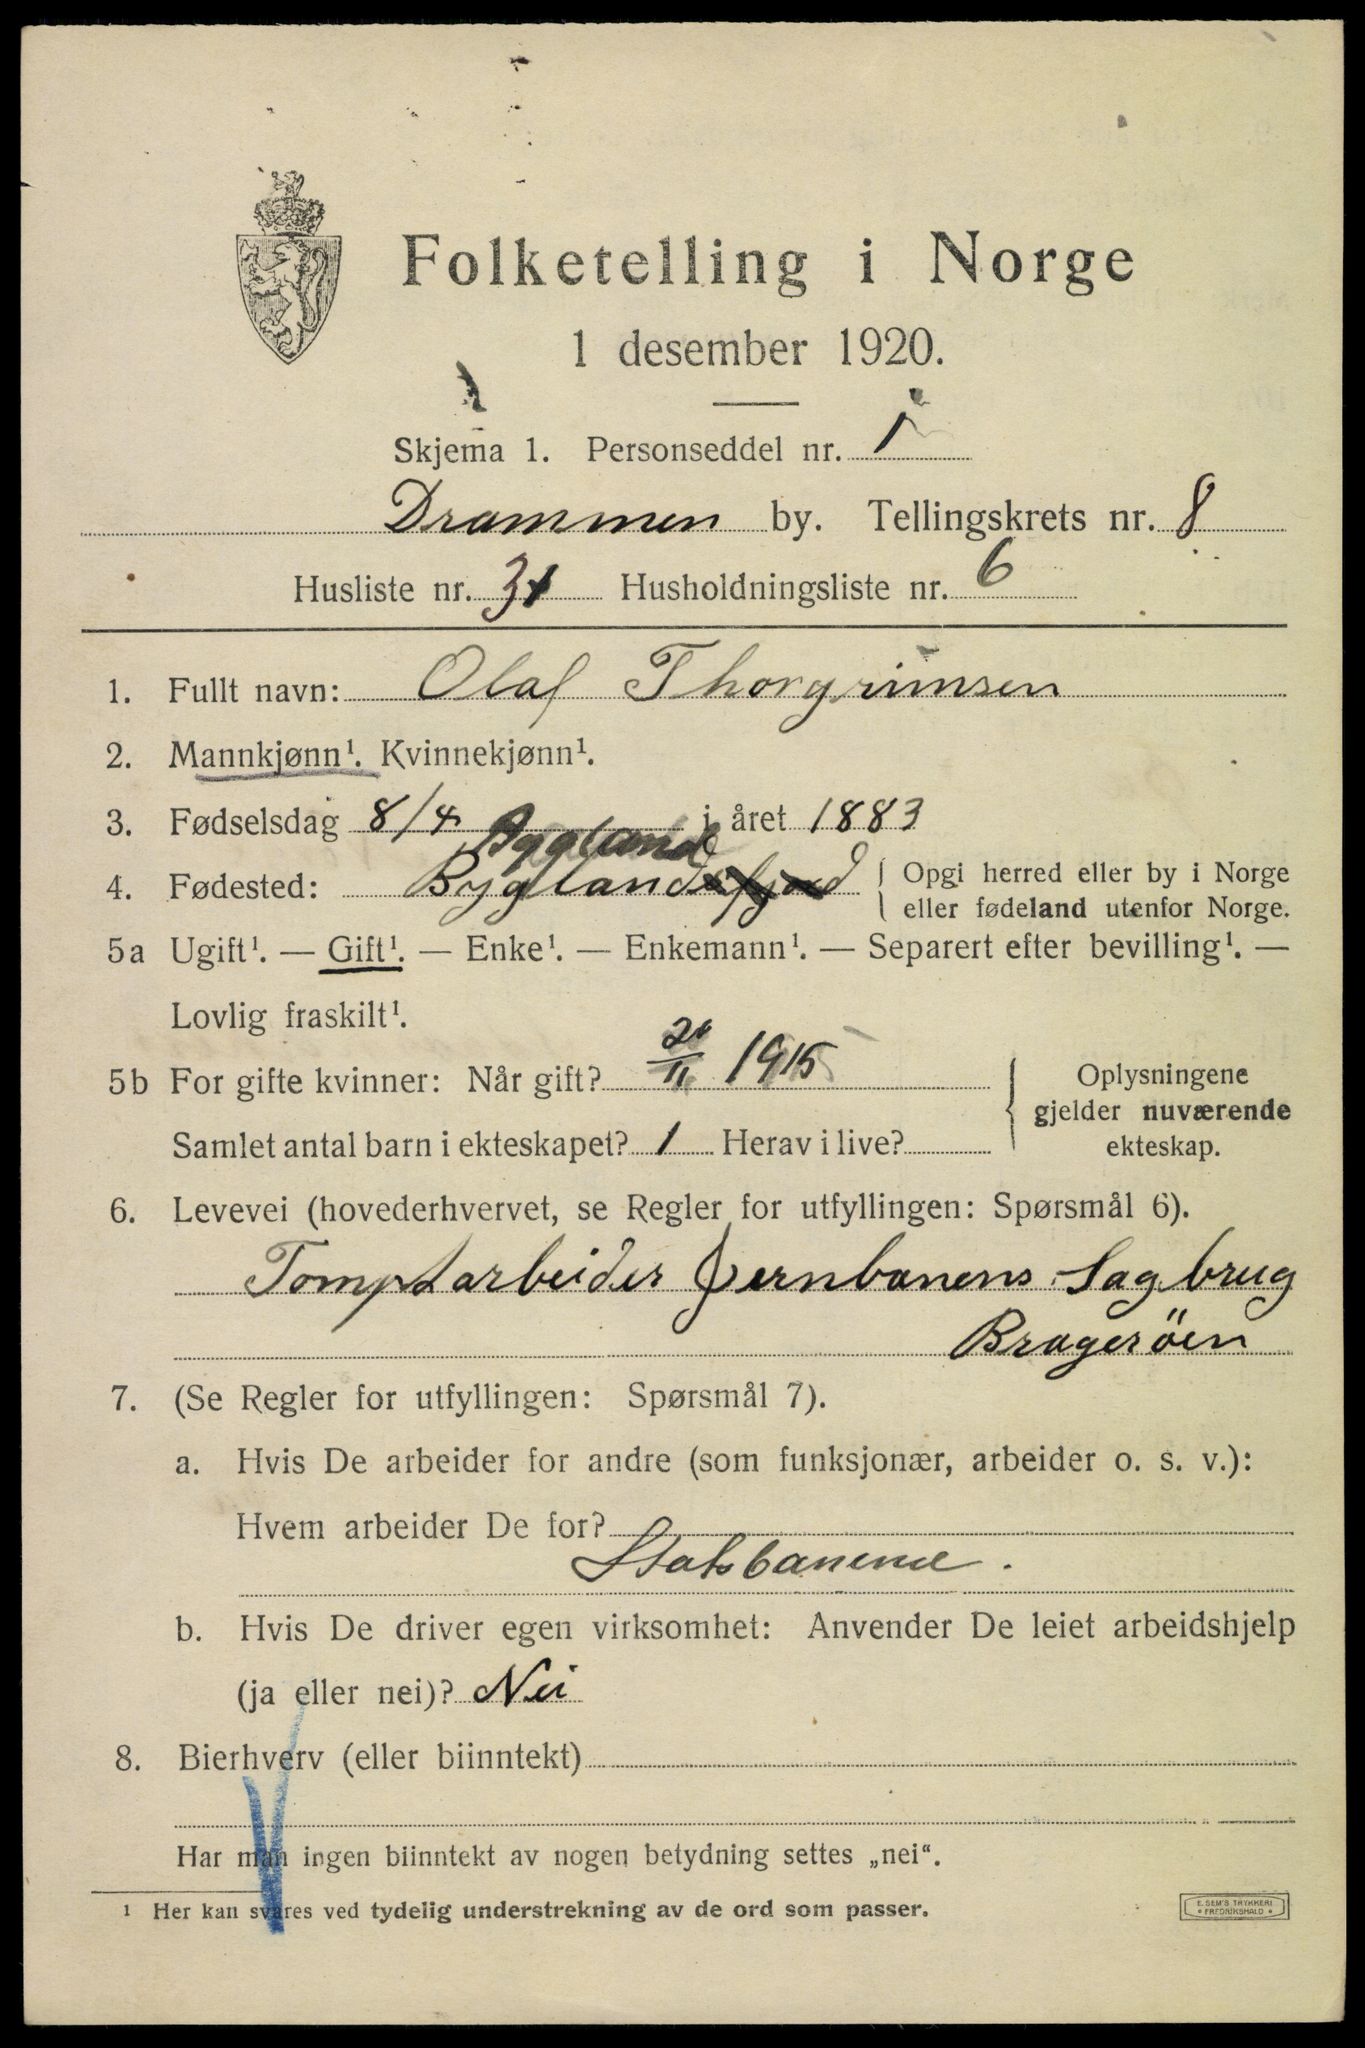 Folketelling i Norge
1 desember 1920.
Skjema 1. Personseddel nr. 1
Drammen by. Tellingskrets nr. 8
Husliste nr. 31 Husholdningsliste nr. 6
1. Fullt navn: Olaf Thorgrimsen
2. Mannkjønn¹. Kvinnekjønn¹.
3. Fødselsdag 8/4 i året 1883
Bygland
4. Fødested: Byglandsfjord { Opgi herred eller by i Norge
eller fødeland utenfor Norge.
5a Ugift¹. — Gift¹. — Enke¹. — Enkemann¹. — Separert efter bevilling¹. —
Lovlig fraskilt¹.
5b For gifte kvinner: Når gift? 1915 { Oplysningene
gjelder nuværende
Samlet antal barn i ekteskapet? 1 Herav i live? ekteskap.
6. Levevei (hovederhvervet, se Regler for utfyllingen: Spørsmål 6).
Tomptarbeider Jernbanens Sagbrug
Brageröen
7. (Se Regler for utfyllingen: Spørsmål 7).
a. Hvis De arbeider for andre (som funksjonær, arbeider o. s. v.):
Hvem arbeider De for?
Statsbanene.
b. Hvis De driver egen virksomhet: Anvender De leiet arbeidshjelp
(ja eller nei)? Nei
8. Bierhverv (eller biinntekt)
Har man ingen biinntekt av nogen betydning settes „nei“.
¹ Her kan svares ved tydelig understrekning av de ord som passer.
E. SEM'S TRYKKERI
FREDRIKSHALD